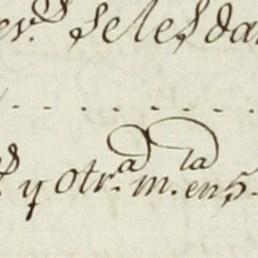 er.s Seles da
y Otr.a m.la en 5.